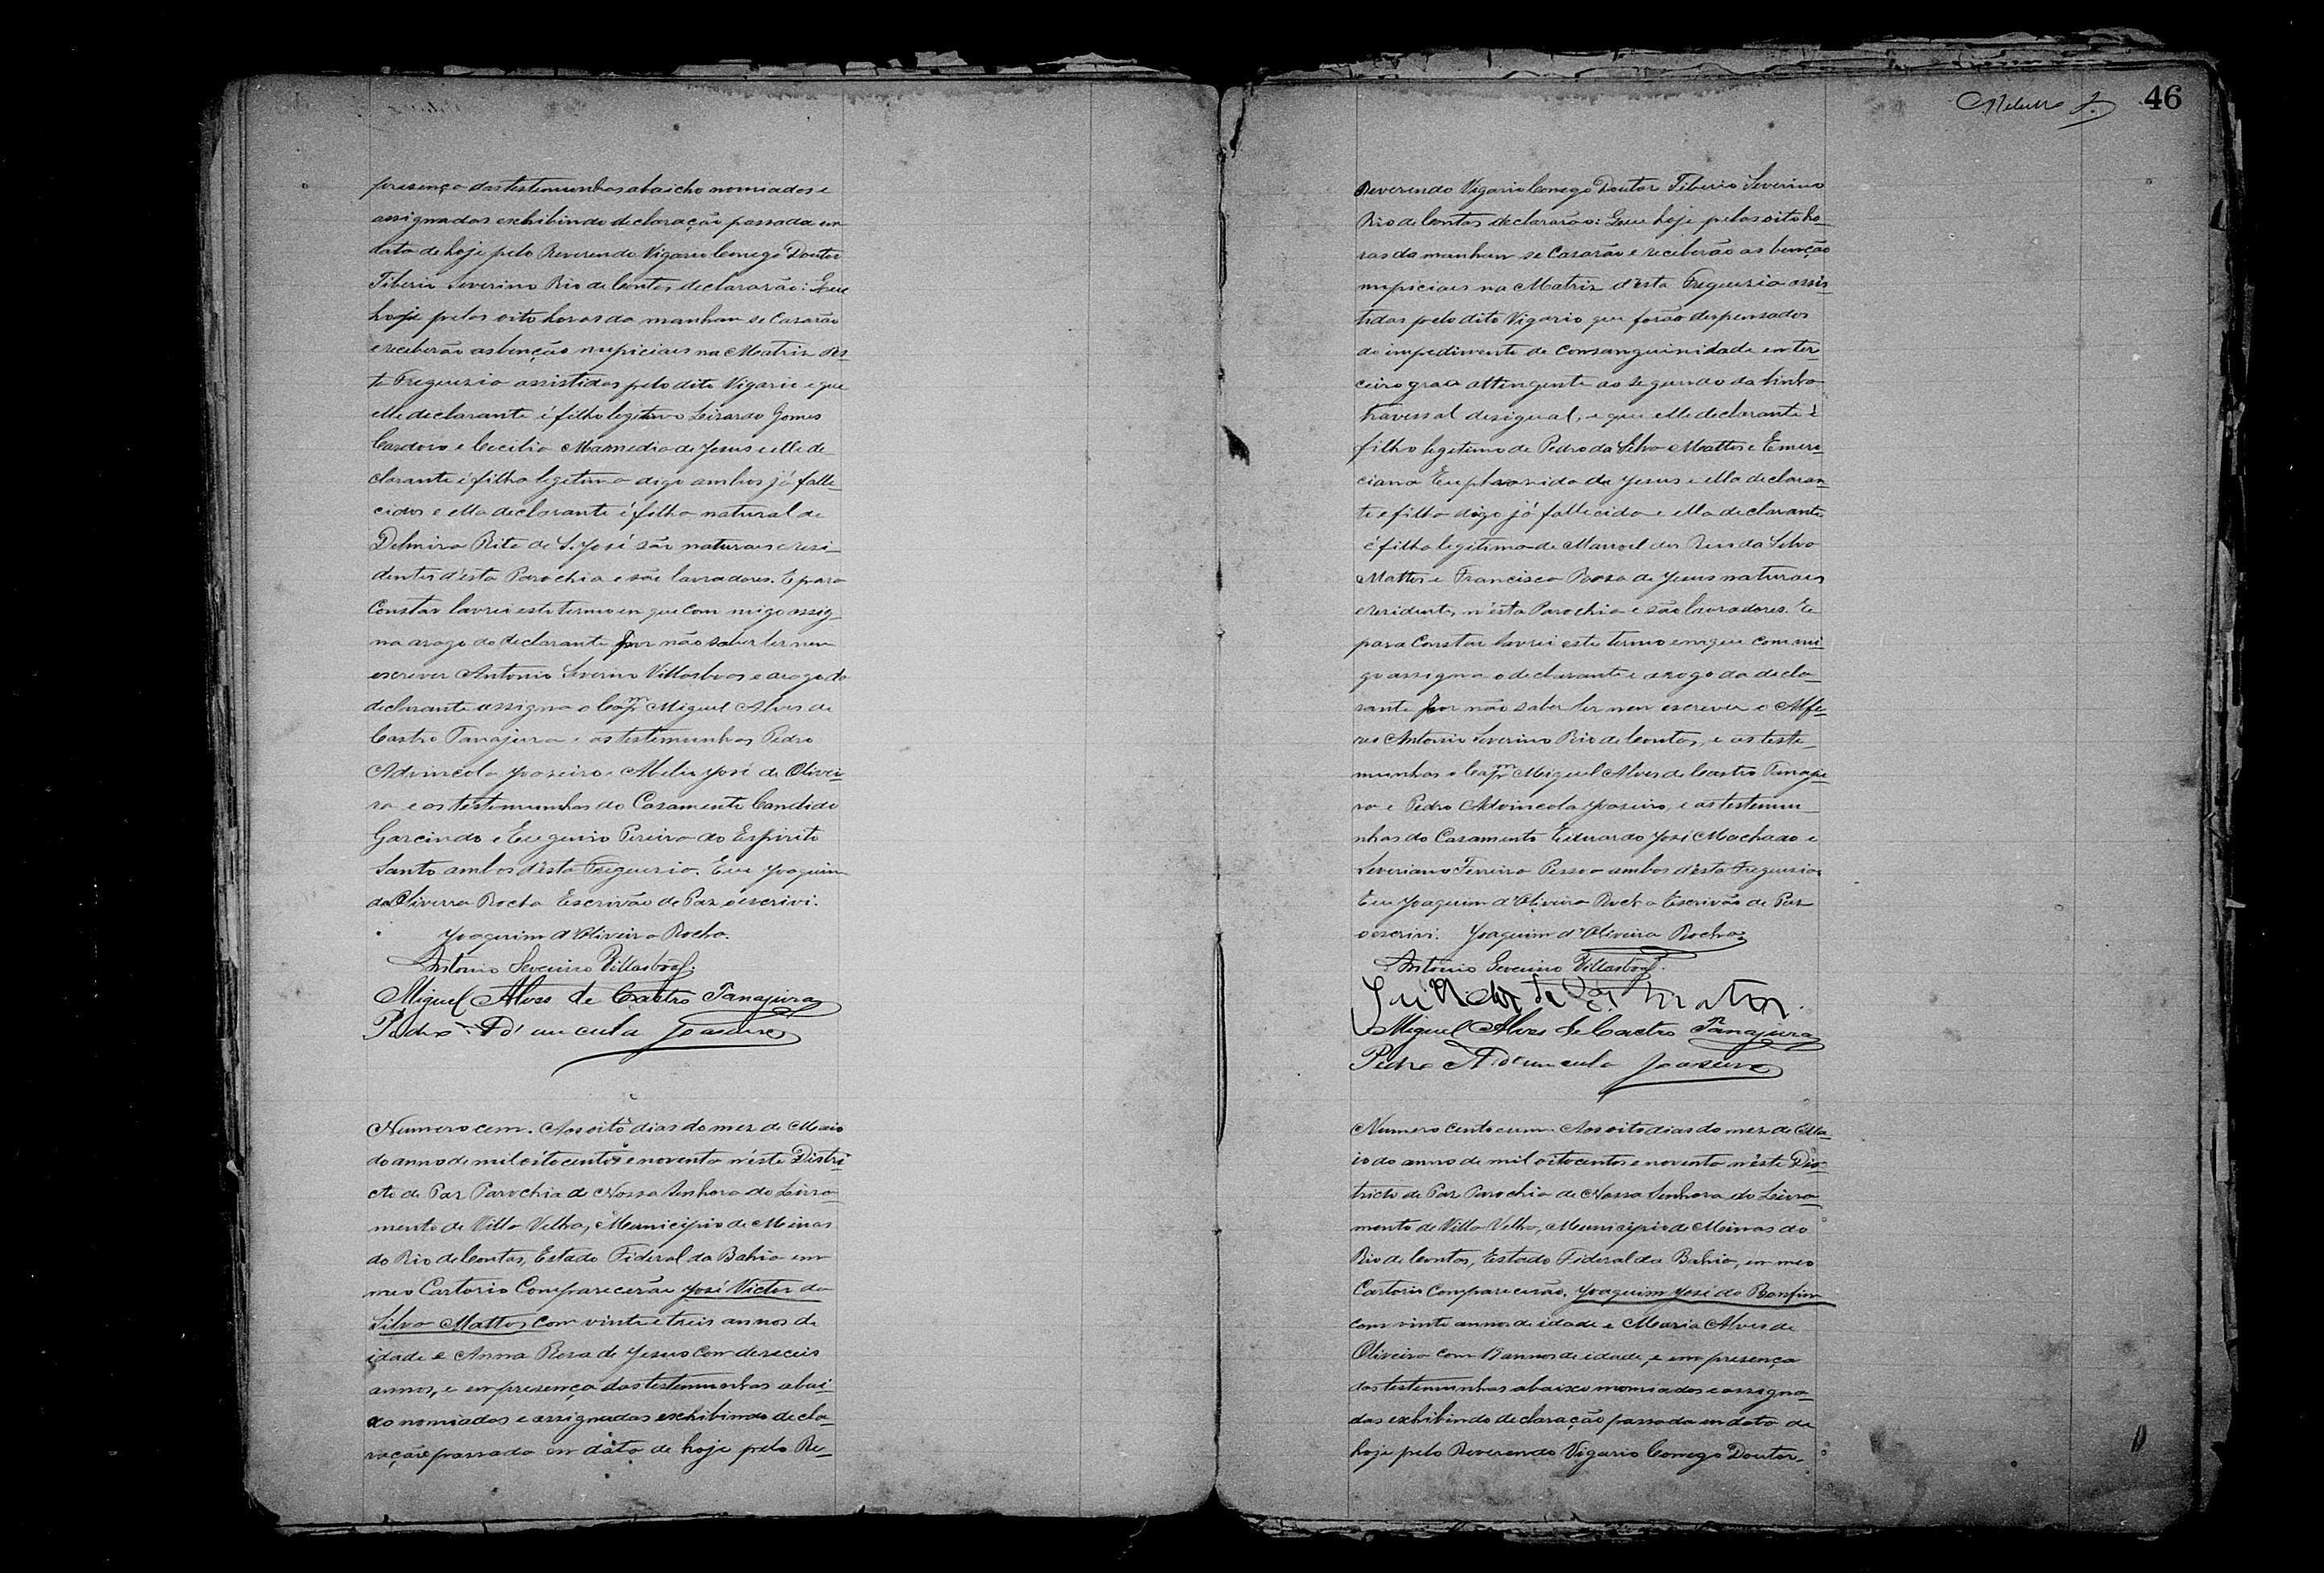 presença das testemunhas abaicho nomiados e
assignados exhibindo declaração passada em
data de hoje pelo Reverendo Vigario Conego Doutor
Tiberio Severino Rio de Contas declararão: Que
hoje pelas oito horas da manhan se Casarão
e receberão as benção nupiciais na Matriz des-
ta Freguezia assistidos pelo dito Vigario e que
elle declarante é filho legitimo Leisardo Gomes
Cardoso e Cecilia Mamedia de Jesus e elle de
clarante é filho legitimo digo ambos já falle-
cidos e ella declarante é filha natural de
Delmira Rita de S. José são naturaes e resi-
dentes d'esta Parochia e são lavradores. E para
Constar lavrei este termo em que com migo assig-
na arogo do declarante por não saber ler nem
escrever Antonio Severino Villasboas e arogo da
declarante assigna o Capm Miguel Alves de
Castro Tanajura e as testemunhas Pedro
Advincola Joazeiro e Abilio José de Olivei-
ra e as testemunhas do Casamento Candido
Garcindo e Eugenio Pereira do Espirito
Santo ambos d'esta Freguezia. Eu Joaquim
da Oliveira Rocha Escrivão de Paz o escrivi.
Joaquim d'Oliveira Rocha.
Antonio Severino Villasboas.
Miguel Alves de Castro Tanajura
Pedro Ad'uncula Joaseiro
Numero cem. Aos oito dias do mez de Maio
do anno de mil oito centos e noventa n'este Distri-
cto de Paz Parochia de Nossa Senhora do Livra-
mento de Villa Velha, Municipio de Minas
do Rio de Contas, Estado Fideral da Bahia em
meo Cartorio Comparecerão José Victor da
Silva Mattos com vinte e treis annos de
idade e Anna Rosa de Jesus com deseceis
annos, e em presença das testemunhas abai-
xo nomiados e assignadas exhibindo decla-
ração passada em data de hoje pelo Re-
46
Reverendo Vigario Conego Doutor Tiberio Severino
Rio de Contas declararão: Que hoje pelas oito ho-
ras da manhan se Casarão e receberão as benção
nupiciais na Matriz d'esta Freguezia assis-
tidos pelo dito Vigario que forão despensados
do impedimento de Consanguinidade em ter-
ceiro grao attingente ao segundo da linha
travessal desigual, e que elle declarante é
filho legitimo de Pedro da Silva Mattos e Emere-
ciana Euphranida de Jesus e ella declaran-
te e filha digo já fallecida e ella declarante
é filha legitima de Manoel dos Reis da Silva
Mattos e Francisca Rosa de Jesus naturaes
e residentes n'esta Parochia e são lavradores. E
para Constar lavrei este termo em que com mi-
go assigna o declarante e arogo da decla-
rante por não saber ler nem escrever o Alfe-
res Antonio Severino Rio de Contas, e as teste-
munhas o Capm Miguel Alves de Castro Tanaju-
ra e Pedro Advincola Joaseiro, e as testemu-
nhas do Casamento Eduardo José Machado e
Severiano Ferreira Pessoa ambos d'esta Freguezia
Eu Joaquim d'Oliveira Rocha Escrivão de Paz
o escrivi. Joaquim d'Oliveira Rocha
Antonio Severino Villasboas.
José Victor da Silva Mattos.
Miguel Alves de Castro Tanajura
Pedro Ad'uncula Joaseiro
Numero cento e um. Aos oito dias do mez de Ma-
io do anno de mil oitocentos e noventa n'este Dis-
tricto de Paz Parochia de Nossa Senhora do Livra-
mento de Villa Velha, Municipio de Minas do
Rio de Contas, Estado Fideral da Bahia, em meo
Cartorio Comparecerão, Joaquim José do Bomfim
com vinte annos de idade e Maria Alves de
Oliveira com 18 annos de idade, e em presença
das testemunhas abaixo nomiados e assigna-
das exhibindo declaração passada em data de
hoje pelo Reverendo Vigario Conego Doutor